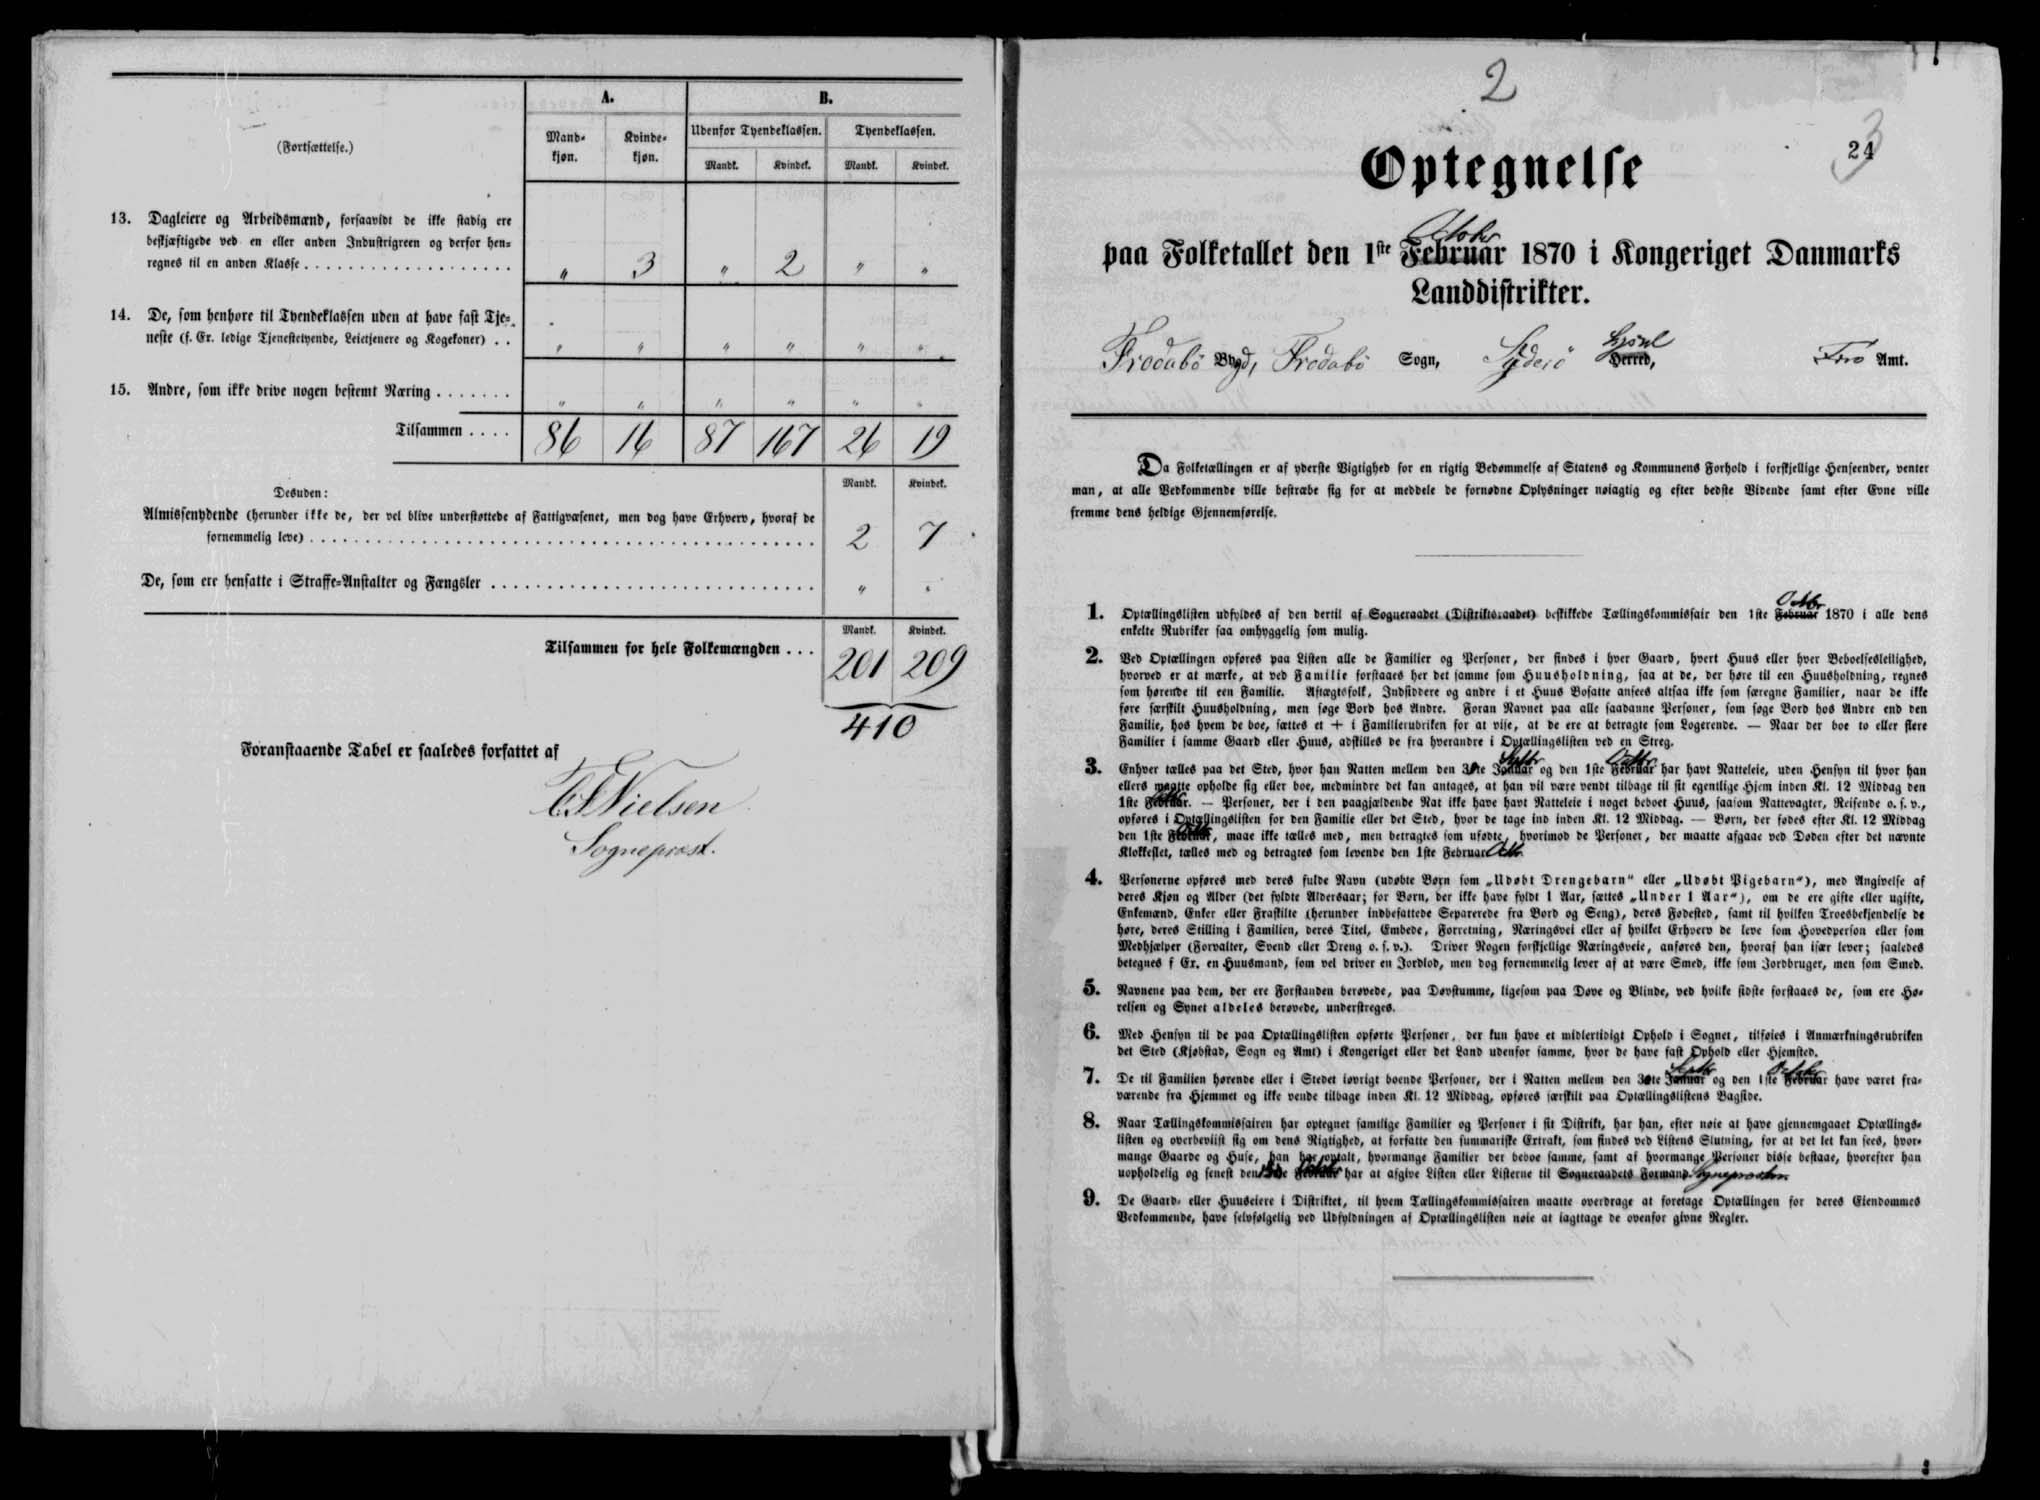 A.
B.
(Fortsættelse.)
Mand-
kjøn.
Kvinde-
kjøn.
Udenfor Tyendeklassen.
Tyendeklassen.
Mandk.
Kvindek.
Mandk.
Kvindek.
13. Dagleiere og Arbeidsmænd, forsaavidt de ikke stadig ere
beskjæftigede ved en eller anden Industrigreen og derfor hen-
regnes til en anden Klasse . . . . . . . . . . . . . . . . . . .
" 3 " 2 " "
14. De, som henhøre til Tyendeklassen uden at have fast Tje-
neste (f. Ex. ledige Tjenestetyende, Leietjenere og Kogekoner) . .
" " " " " "
15. Andre, som ikke drive nogen bestemt Næring . . . . . . .
" " " " " "
Tilsammen . . . . 86 16 87 167 26 19
Mandk.
Kvindek.
Desuden:
Almissenydende (herunder ikke de, der vel blive understøttede af Fattigvæsenet, men dog have Erhverv, hvoraf de
fornemmelig leve) . . . . . . . . . . . . . . . . . . . . . . . . 2 7
De, som ere hensatte i Straffe-Anstalter og Fængsler . . . . . . . . . . " "
Mandk.
Kvindek.
Tilsammen for hele Folkemængden . . . 201 209
410
Foranstaaende Tabel er saaledes forfattet af
Nielsen
Sognepræst.
2
3
24
Optegnelse
October
paa Folketallet den 1ste Februar 1870 i Kongeriget Danmarks
Landdistrikter.
Syssel
Frodebø Bygd, Frodebø Sogn, Syderø Herred, Færø Amt.
Da Folketællingen er af yderste Vigtighed for en rigtig Bedømmelse af Statens og Kommunens Forhold i forskjellige Henseender, venter
man, at alle Vedkommende ville bestræbe sig for at meddele de fornødne Oplysninger nøiagtig og efter bedste Vidende samt efter Evne ville
fremme dens heldige Gjennemførelse.
Octbr
1. Optællingslisten udfyldes af den dertil af Sogneraadet (Distriktsraadet) beskikkede Tællingskommissair den 1ste Februar 1870 i alle dens
enkelte Rubriker saa omhyggelig som mulig.
2. Ved Optællingen opføres paa Listen alle de Familier og Personer, der findes i hver Gaard, hvert Huus eller hver Beboelsesleilighed,
hvorved er at mærke, at ved Familie forstaaes her det samme som Huusholdning, saa at de, der høre til een Huusholdning, regnes
som hørende til een Familie. Aftægtsfolk, Indsiddere og andre i et Huus Bosatte ansees altsaa ikke som særegne Familier, naar de ikke
føre særskilt Huusholdning, men søge Bord hos Andre. Foran Navnet paa alle saadanne Personer, som søge Bord hos Andre end den
Familie, hos hvem de boe, sættes et + i Familierubriken for at vise, at de ere at betragte som Logerende. — Naar der boe to eller flere
Familier i samme Gaard eller Huus, adskilles de fra hverandre i Optællingslisten ved en Streg.
Septbr Octbr
3. Enhver tælles paa det Sted, hvor han Natten mellem den 30te Januar og den 1ste Februar har havt Natteleie, uden Hensyn til hvor han
ellers maatte opholde sig eller boe, medmindre det kan antages, at han vil være vendt tilbage til sit egentlige Hjem inden Kl. 12 Middag den
Octbr
1ste Februar. — Personer, der i den paagjældende Nat ikke have havt Natteleie i noget beboet Huus, saasom Nattevagter, Reisende o. s. v.,
opføres i Optællingslisten for den Familie eller det Sted, hvor de tage ind inden Kl. 12 Middag. — Børn, der fødes efter Kl. 12 Middag
Octbr
den 1ste Februar, maae ikke tælles med, men betragtes som ufødte, hvorimod de Personer, der maatte afgaae ved Døden efter det nævnte
Klokkeslet, tælles med og betragtes som levende den 1ste Februar Octbr
4. Personerne opføres med deres fulde Navn (udøbte Børn som „Udøbt Drengebarn“ eller „Udøbt Pigebarn“), med Angivelse af
deres Kjøn og Alder (det fyldte Aldersaar; for Børn, der ikke have fyldt 1 Aar, sættes „Under 1 Aar“), om de ere gifte eller ugifte,
Enkemænd, Enker eller Fraskilte (herunder indbefattede Separerede fra Bord og Seng), deres Fødested, samt til hvilken Troesbekjendelse de
høre, deres Stilling i Familien, deres Titel, Embede, Forretning, Næringsvei eller af hvilket Erhverv de leve som Hovedperson eller som
Medhjælper (Forvalter, Svend eller Dreng o. s. v.). Driver Nogen forskjellige Næringsveie, anføres den, hvoraf han især lever; saaledes
betegnes f Ex. en Huusmand, som vel driver en Jordlod, men dog fornemmelig lever af at være Smed, ikke som Jordbruger, men som Smed.
5. Navnene paa dem, der ere Forstanden berøvede, paa Døvstumme, ligesom paa Døve og Blinde, ved hvilke sidste forstaaes de, som ere Hø-
relsen og Synet aldeles berøvede, understreges.
6. Med Hensyn til de paa Optællingslisten opførte Personer, der kun have et midlertidigt Ophold i Sognet, tilføies i Anmærkningsrubriken
det Sted (Kjøbstad, Sogn og Amt) i Kongeriget eller det Land udenfor samme, hvor de have fast Ophold eller Hjemsted.
Septbr Octbr
7. De til Familien hørende eller i Stedet iøvrigt boende Personer, der i Natten mellem den 30te Januar og den 1ste Februar have været fra-
værende fra Hjemmet og ikke vende tilbage inden Kl. 12 Middag, opføres særskilt paa Optællingslistens Bagside.
8. Naar Tællingskommissairen har optegnet samtlige Familier og Personer i sit Distrikt, har han, efter nøie at have gjennemgaaet Optællings-
listen og overbeviist sig om dens Rigtighed, at forfatte den summariske Extrakt, som findes ved Listens Slutning, for at det let kan sees, hvor-
mange Gaarde og Huse, han har optalt, hvormange Familier der beboe samme, samt af hvormange Personer disse bestaae, hvorefter han
Octbr
uopholdelig og senest den Februar har at afgive Listen eller Listerne til Sogneraadets Formand Sognepræsten
9. De Gaard- eller Huuseiere i Distriktet, til hvem Tællingskommissairen maatte overdrage at foretage Optællingen for deres Eiendommes
Vedkommende, have selvfølgelig ved Udfyldningen af Optællingslisten nøie at iagttage de ovenfor givne Regler.